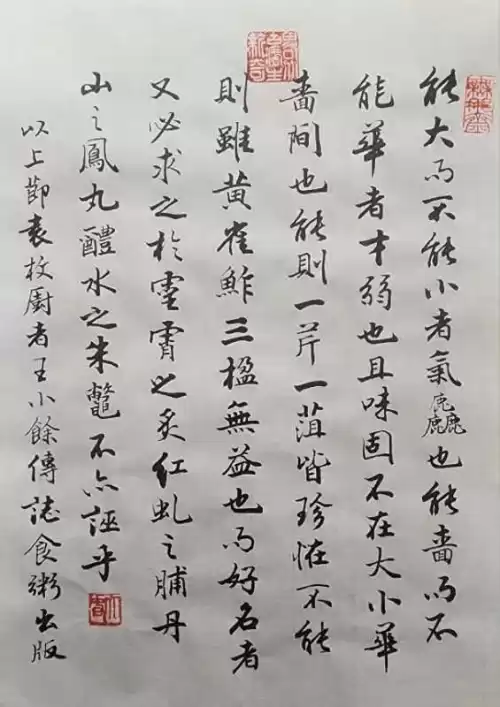 能大而不能小者氣麤也能嗇而不
能華者才弱也且味固不在大小華
嗇間也能則一芹一菹皆珍恠不能
則雖黄雀鮓三楹無益也而好名者
又必求之於靈霄之炙紅虬之脯丹
山之鳳丸醴水之朱鼈不亦誣乎
以上節袁枚廚者王小餘傳誌食粥出版